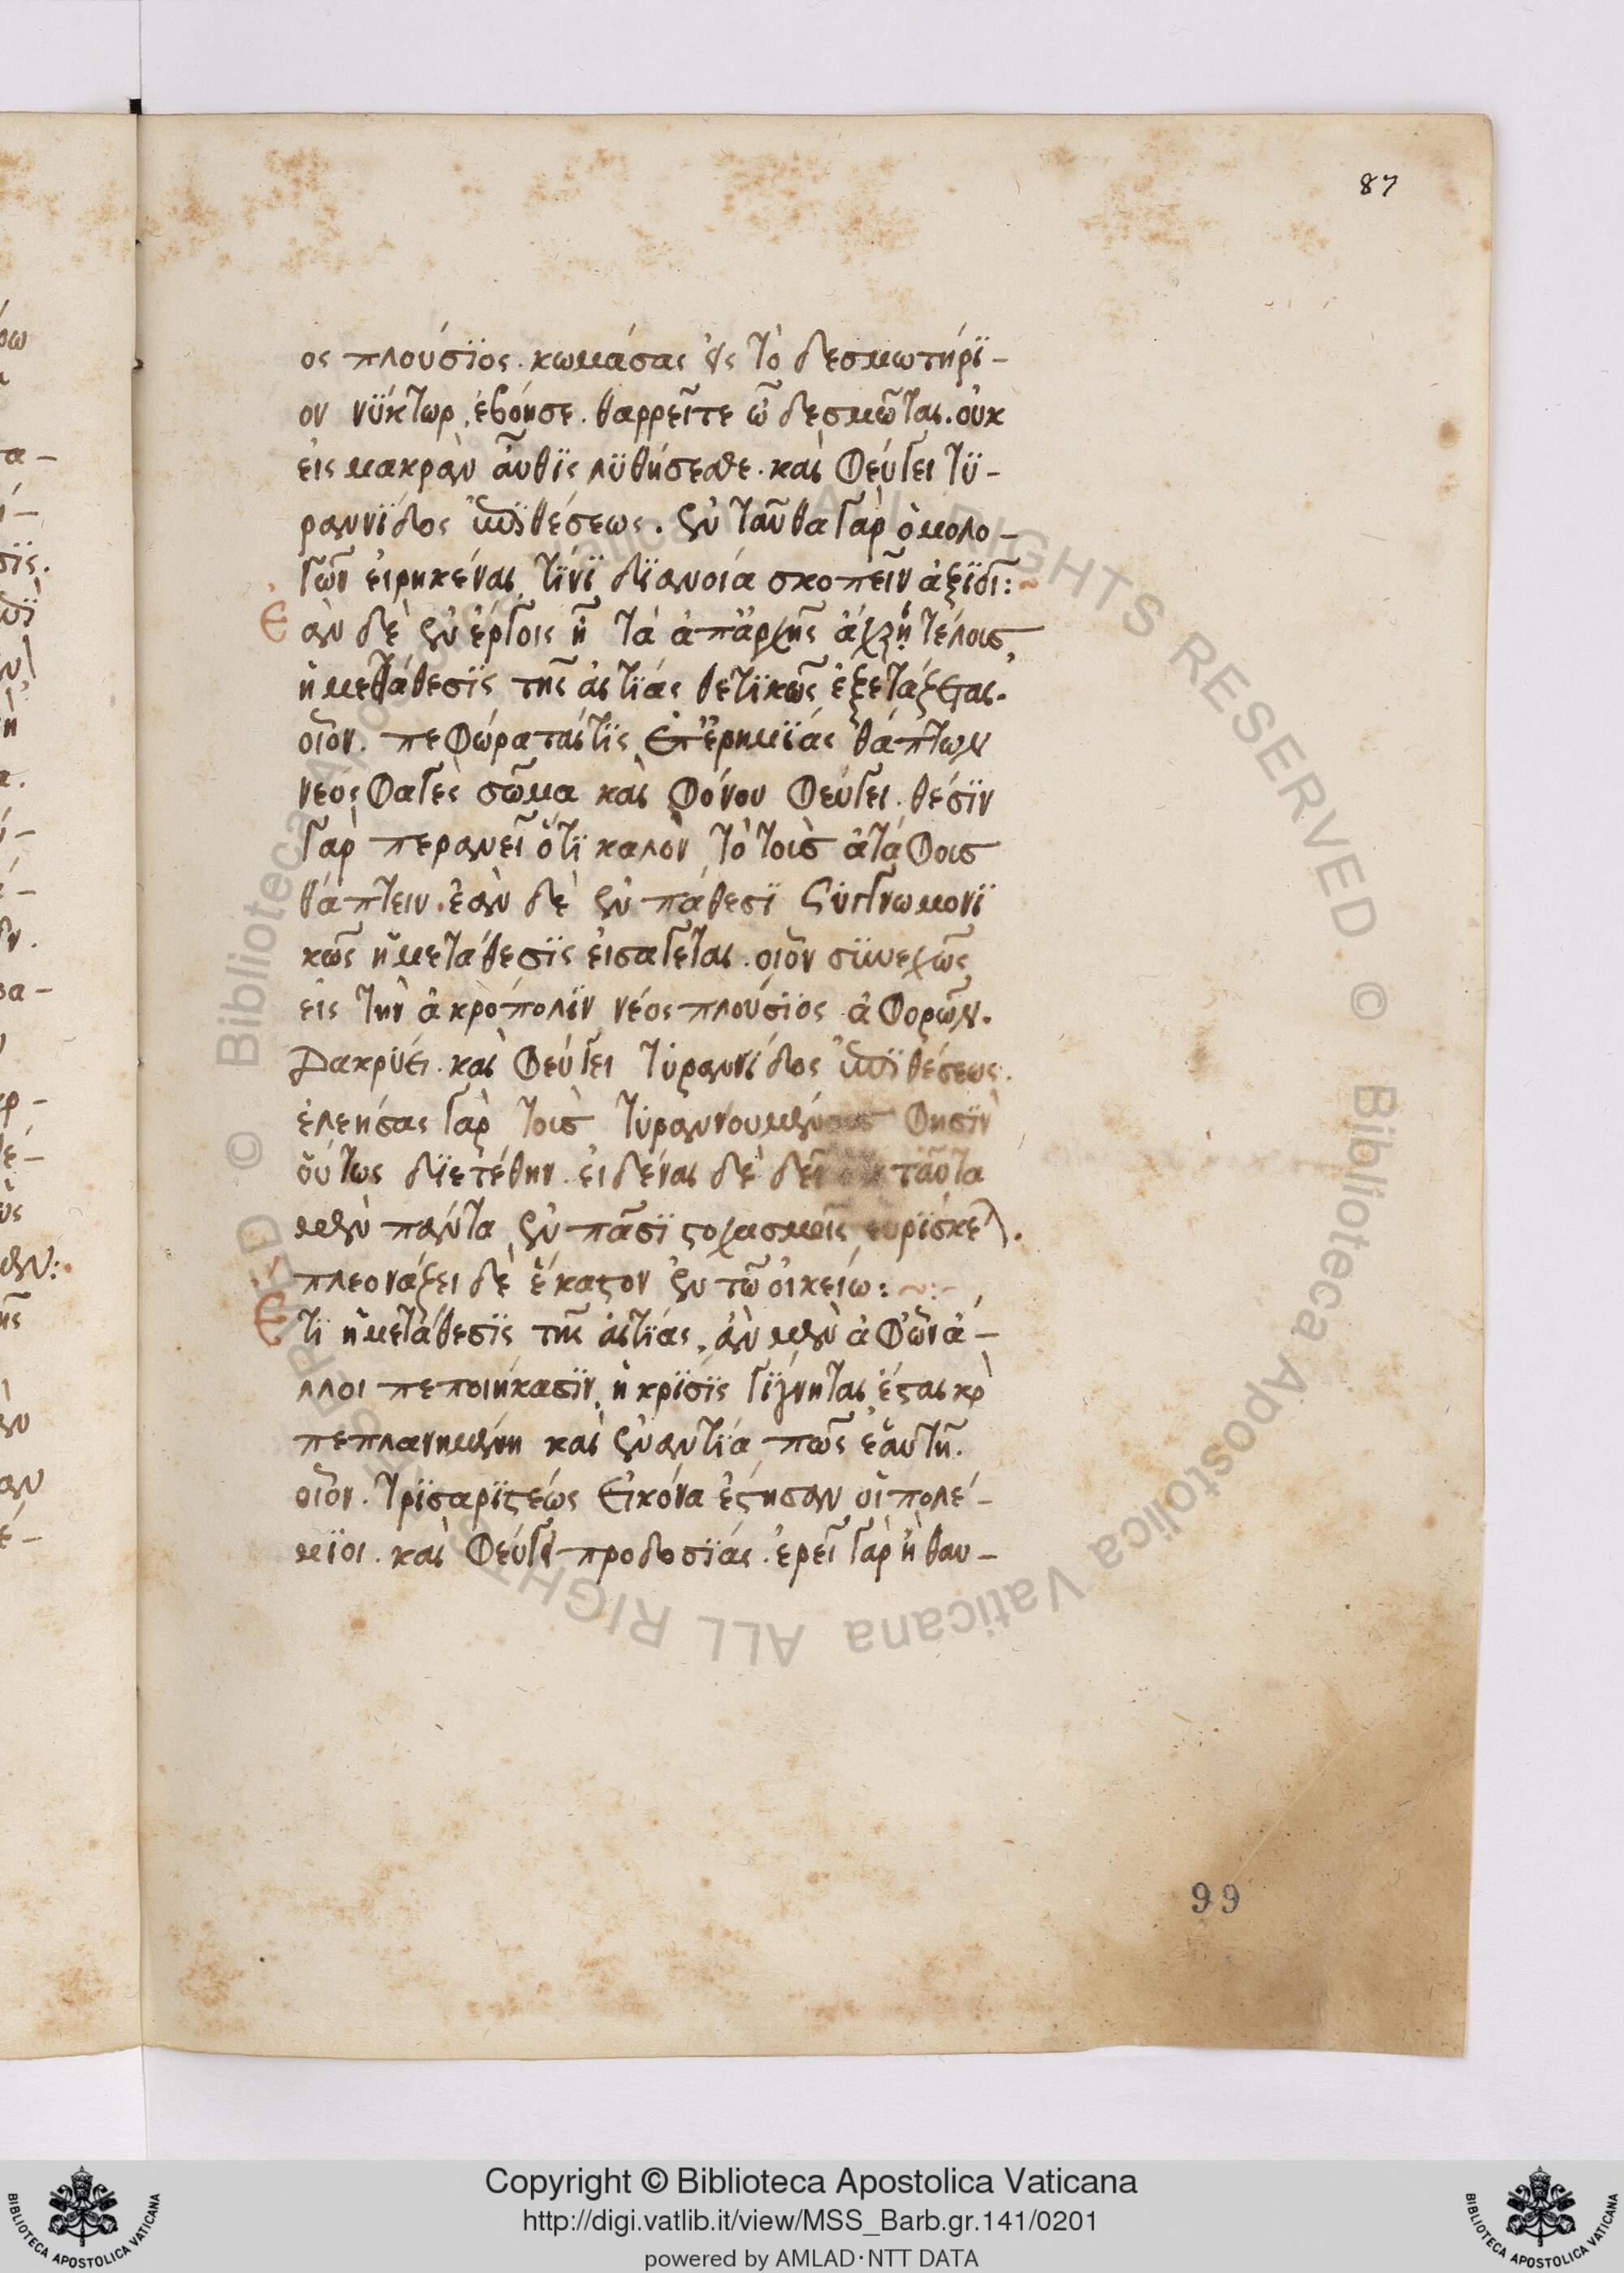 87
ος πλούσϊος. κωμάσας εἰς τὸ δεσμωτήρϊ-
ον νΰκτωρ, ἐβόησε. θαρρεῖτε ὦ δεσμῶται. οὐκ
εἰς μακρὰν αὖθϊς λϋθήσεσθε. καὶ φεύγει τϋ-
ραννΐδος ἐπϊθέσεως. ἐνταῦθα γὰρ ὁμολο-
γῶν εἰρηκέναι, τίνϊ δϊανοία σκοπεῖν ἀξϊοῖ:~
Ἐὰν δὲ ἐν ἔργοις ἦ τὰ ἀπ' ἀρχῆς ἄχρι τέλους,
ἡ μετάθεσϊς τῆς αἰτϊας θετϊκῶς ἐξετάζεται.
οἷον. πεφώραταί τϊς ἐπ' ἐρημϊας θάπτων
νεοσφαγὲς σῶμα καὶ φόνου φεύγει. θέσϊν
γὰρ περανεῖ ὅτϊ καλὸν τὸ τοὺς ἀτάφους
θάπτειν. ἐὰν δὲ ἐν πάθεσϊ συγγνωμονϊ
κῶς ἡ μετάθεσϊς εἰσάγεται. οἷον συνεχῶς
εἰς τὴν ἀκρόπολϊν νέος πλούσϊος ἀφορῶν.
Δακρύει. καὶ φεύγει τϋραννΐδος ἐπϊθέσεως.
ἐλεήσας γὰρ τοὺς τϋραννουμένους φησῒν
οὕτως δϊετέθην. εἰδέναι δὲ δεῖ ὅτι ταῦτα
μὲν πάντα ἐν πᾶσϊ στοχασμοῖς εὑρϊσκε.
πλεονάζει δὲ ἕκαστον ἐν τῶ οἰκείω:~:-
Ἔτϊ ἡ μετάθεσϊς τῆς αἰτϊας, ἂν μὲν ἀφ' ὧν ἀ-
λλοι πεποιήκασϊν, ἡ κρίσϊς γϊγνηται, ἔσται κρ
πεπλανημένη καὶ ἐναντϊα πως ἑαυτῆ.
οἷον. τρϊσαρϊστέως εἰκόνα ἔστησαν οἱ πολέ-
μϊοι. καὶ φεύγει προδοσϊας. ἐρεῖ γὰρ ἢ θαυ-
99
Copyright © Biblioteca Apostolica Vaticana
http://digi.vatlib.it/view/MSS_Barb.gr.141/0201
powered by AMLAD·NTT DATA